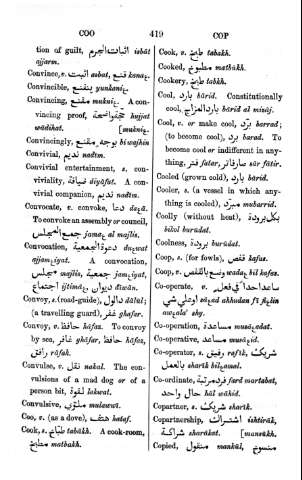 COO 419 COP
tion of guilt, اثبات الجرم isbāt
ajjarm.
Convince, v. اثبت asbat, قنع kanaɛ.
Convincible, ينقنع yunkaniɛ.
Convincing, مقنع mukniɛ. A con-
vincing proof, حجة واضحة hujjat
wādihat. [mukniɛ.
Convincingly, بوجه مقنع biwajhin
Convivial, نديم nadīm.
Convivial entertainment, s. con-
viviality, ضيافة diyāfat. A con-
vivial companion, نديم nadīm.
Convocate, v. convoke, دعا daɛā.
To convoke an assembly or council,
جمع المجلس jamaɛ al majlis.
Convocation, دعوة الجمعية daɛwat
ajjamɛiyat. A convocation,
مجلس majlis, جمعية jamɛiyat,
اجتماع ijtimāɛ, ديوان dīwān.
Convoy, s. (road-guide), دلول dālūl;
(a travelling guard), غفر ghafar.
Convoy, v. حافظ hāfaz. To convoy
by sea, غافر ghāfar, حافظ hāfaz,
رافق rāfak.
Convulse, v. نقل nakal. The con-
vulsions of a mad dog or of a
person bit, لقوة lakwat.
Convulsive, ملوّي mulawwī.
Coo, v. (as a dove), هتف hataf.
Cook, s. طباخ tabākh. A cook-room,
مطبخ matbakh.
Cook, v. طبخ tabakh.
Cooked, مطبوخ matbūkh.
Cookery, طبخ tabkh.
Cool, بارد bārid. Constitutionally
cool, بارد المزاج bārid al mizāj.
Cool, v. or make cool, برّد barrad;
(to become cool), برد barad. To
become cool or indifferent in any-
thing, فتر fatar, صار فاتر sār fātir.
Cooled (grown cold), بارد bārid.
Cooler, s. (a vessel in which any-
thing is cooled), مبرّد mubarrid.
Coolly (without heat), بكل برودة
bikol burūdat.
Coolness, برودة burūdat.
Coop, s. (for fowls), قفص kafas.
Coop, v.
Co-operate, v.
Co-operation, مساعدة musāɛadat.
Co-operative, مساعد musāɛid.
Co-operator, s. رفيق rafīk, شريك
بالعمل sharīk bilɛamal.
Co-ordinate, فرد مرتبة fard martabat,
حال واحد hāl wāhid.
Copartner, s. شريك sharīk.
Copartnership, اشتراك ishtirāk,
شراكة sharākat. [mansūkh.
Copied, منقول mankūl, منسوخ